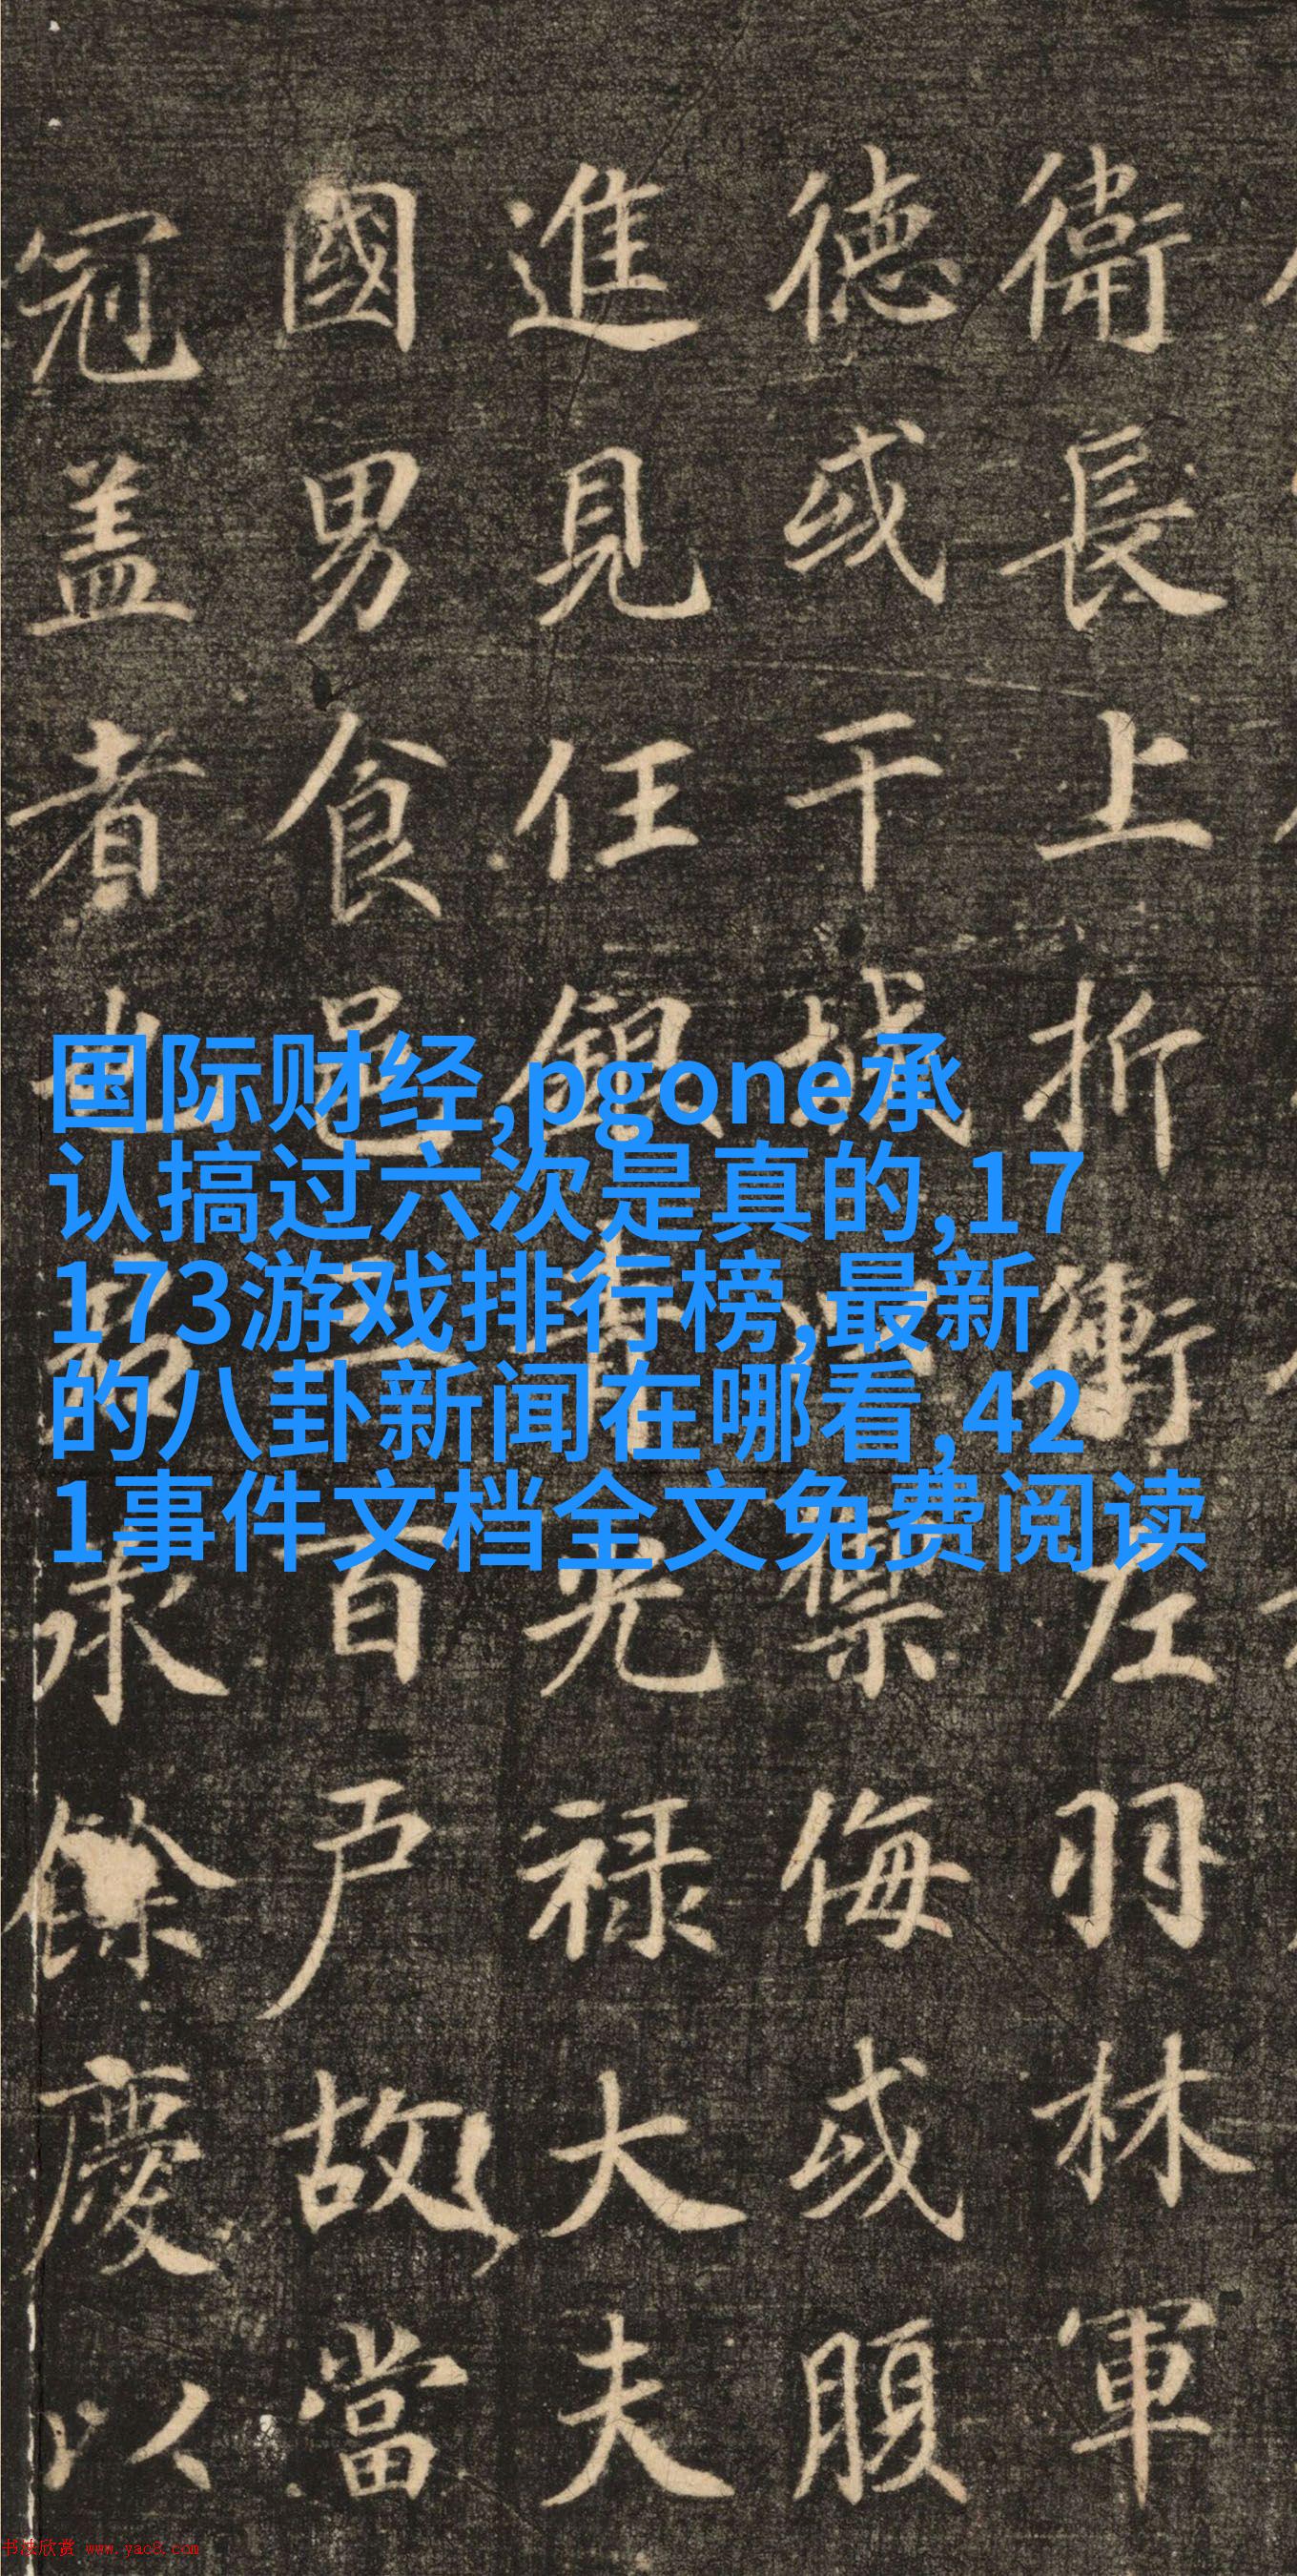 衛長上折衝左羽林軍
德或干城禦侮或腹
進見任銀青光禄大夫
國男食邑三百户故當
冠盖者也承餘慶以
国际财经,pgone承
认搞过六次是真的,17
173游戏排行榜,最新
的八卦新闻在哪看,42
1事件文档全文免费阅读
书法欣赏 www.yac8.com